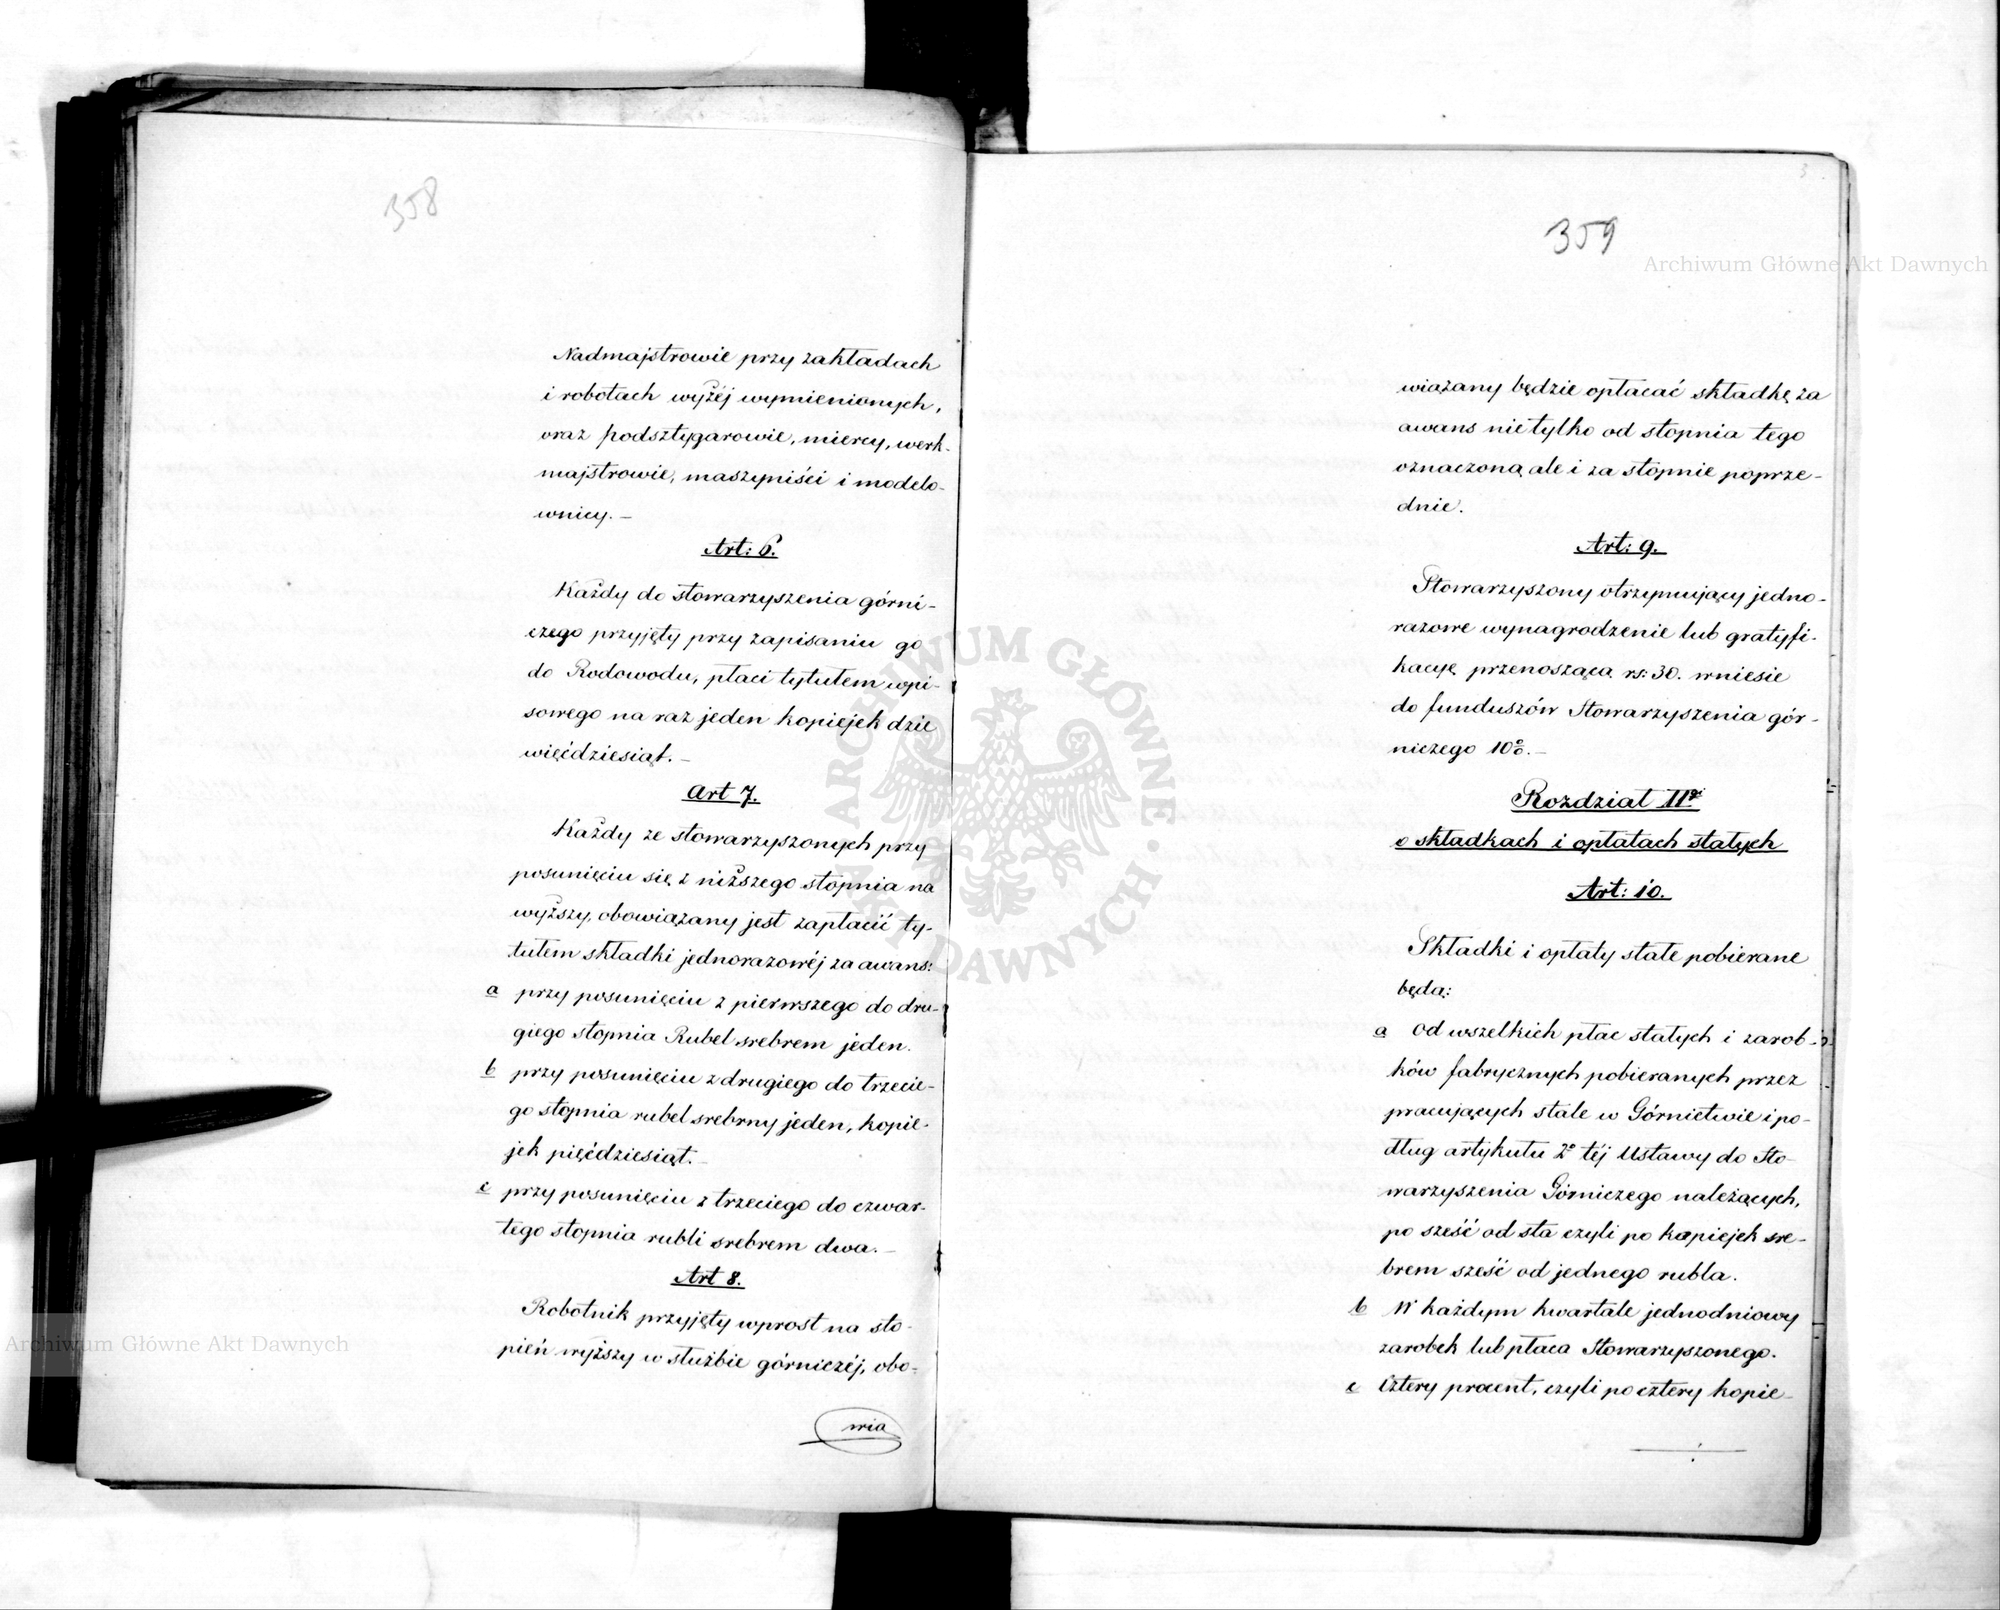 358
Nadmajstrowie przy zakładach
i robotach wyżéj wymienionych,
oraz podsztygarowie, miercy, werk-
majstrowie, maszyniści i modelo-
wnicy. —
Art: 6.
Każdy do stowarzyszenia górni-
czego przyjęty przy zapisaniu go
do Rodowodu, płaci tytułem wpi-
sowego na raz jeden kopiejek dzie
więćdziesiąt. —
Art 7.
Każdy ze stowarzyszonych przy
posunięciu się z niższego stopnia na
wyższy, obowiązany jest zapłacić ty-
tułem składki jednorazowéj za awans:
a przy posunięciu z pierwszego do dru-
giego stopnia Rubel srebrem jeden.
b przy posunięciu z drugiego do trzecie-
go stopnia rubel srebrny jeden, kopie-
jek pięćdziesiąt. —
c przy posunięciu z trzeciego do czwar-
tego stopnia rubli srebrem dwa. —
Art 8.
Robotnik przyjęty wprost na sto-
pień wyższy w służbie górniczéj, obo-
wia
359
wiązany będzie opłacać składkę za
awans nietylko od stopnia tego
oznaczoną, ale i za stopnie poprze-
dnie.
Art: 9.
Stowarzyszony otrzymujący jedno-
razowe wynagrodzenie lub gratyfi-
kacyę przenoszącą rs: 30. wniesie
do funduszów Stowarzyszenia gór-
niczego 10%. —
Rozdział IIgi
o składkach i opłatach stałych
Art: 10.
Składki i opłaty stałe pobierane
będą:
a Od wszelkich płac stałych i zarob-
ków fabrycznych pobieranych przez
pracujących stale w Górnictwie i po-
dług artykułu 2o téj Ustawy do Sto-
warzyszenia Górniczego należących,
po sześć od sta czyli po kopiejek sre-
brem sześć od jednego rubla.
b W każdym kwartale jednodniowy
zarobek lub płaca Stowarzyszonego.
c Cztery procent, czyli po cztery kopie-
Archiwum Główne Akt Dawnych
Archiwum Główne Akt Dawnych
ARCHIWUM GŁÓWNE AKT DAWNYCH